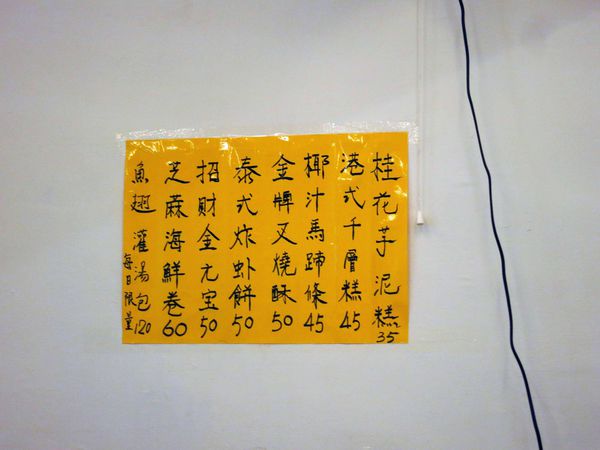 桂花芋泥糕35
港式千層糕45
椰汁馬蹄條45
金牌叉燒酥50
泰式炸虾餅50
招財金元宝50
芝蔴海鮮卷60
魚翅灌湯包120
每日限量